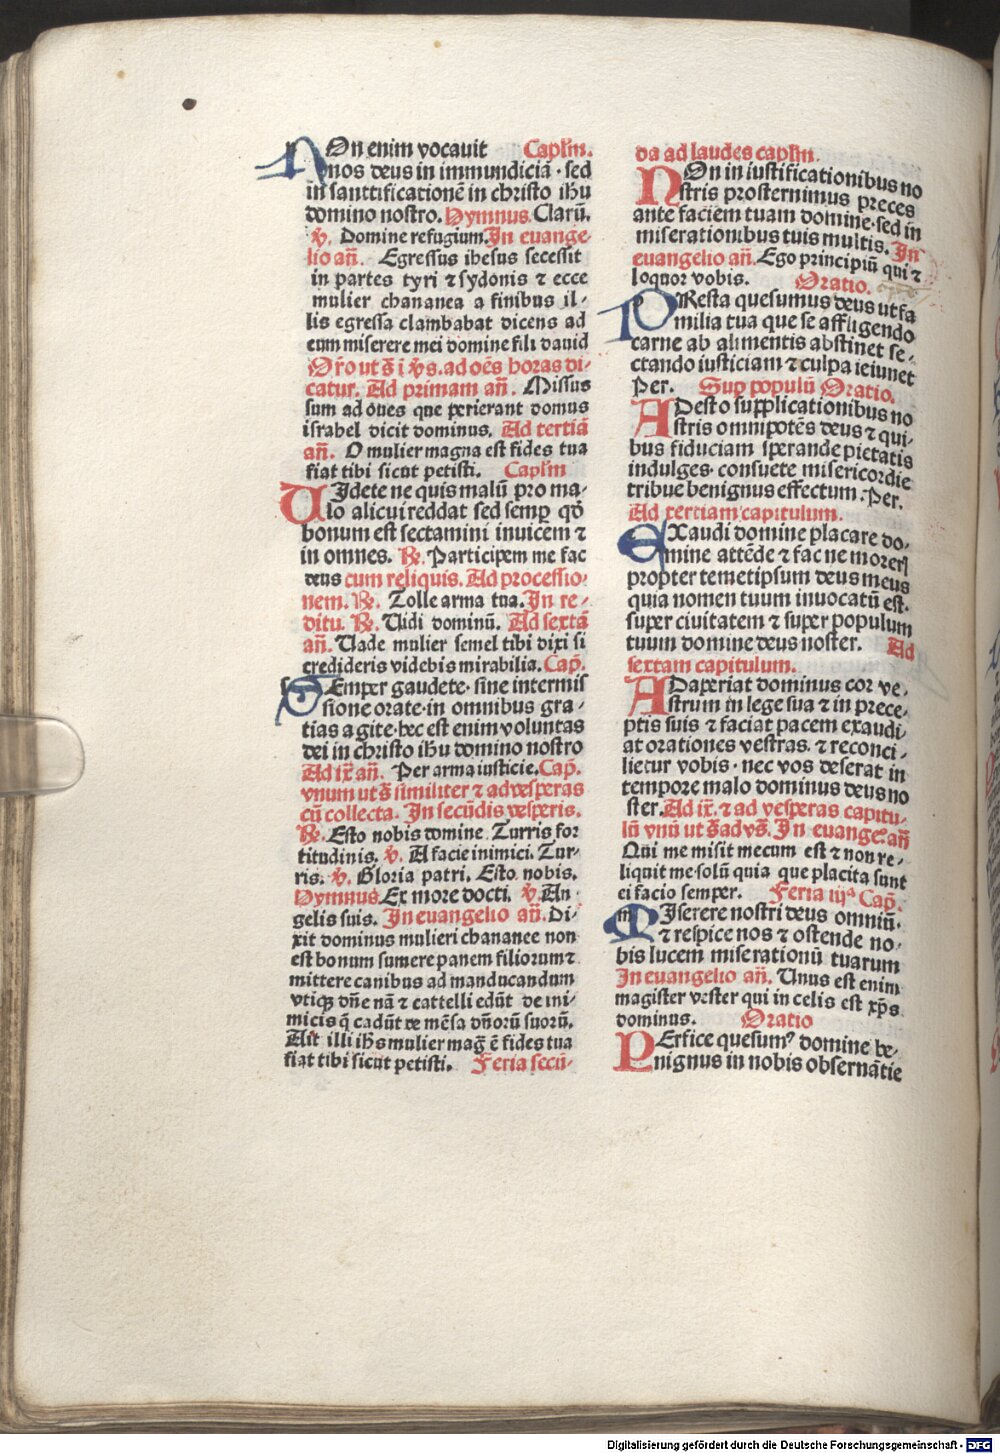 NOn enim vocauit Caplm̄.
nos deus in immundicia · sed
in santtificationē in christo ihū
domino nostro. Hymnus. Clarū.
℣. Domine refugium. In euange-
lio añ. Egressus ihesus secessit
in partes tyri ⁊ sydonis ⁊ ecce
mulier chananea a finibus il-
lis egressa clambabat dicens ad
eum miserere mei domine fili dauid
Or̄o ut s̄ i ℣s. ad oēs horas di-
catur. Ad primam añ. Missus
sum ad oues que perierant domus
israhel dicit dominus. Ad tertiā
añ. O mulier magna est fides tua
fiat tibi sicut petisti. Caplm̄
UIdete ne quis malū pro ma-
lo alicui reddat sed semꝑ qō
bonum est sectamini inuicem ⁊
in omnes. ℟. Participem me fac
deus cum reliquis. Ad processio-
nem. ℟. Tolle arma tua. In re-
ditu. ℟. Uidi dominū. Ad sextā
añ. Uade mulier semel tibi dixi si
credideris videbis mirabilia. Cap̄.
SEmper gaudete · sine intermis
sione orate · in omnibus gra-
tias agite · hec est enim voluntas
dei in christo ihū domino nostro
Ad ix̄ añ. Per arma iusticie. Cap̄.
vnum ut s̄ similiter ⁊ ad vesperas
cū collecta. In secūdis vesperis.
℟. Esto nobis domine. Turris for
titudinis. ℣. A facie inimici. Tur-
ris. ℣. Gloria patri. Esto nobis.
Hymnus. Ex more docti. ℣. An-
gelis suis. In euangelio añ. Di-
xit dominus mulieri chananee non
est bonum sumere panem filiorum ⁊
mittere canibus ad manducandum
vtiqꝫ dn̄e nā ⁊ cattelli edūt de mi-
micis q̄ cadūt de mēsa dn̄orū suorū.
Ait illi ihs̄ mulier maḡ ē fides tua
fiat tibi sicut petisti. Feria secū-
da ad laudes caplm̄.
NOn in iustificationibus no
stris prosternimus preces
ante faciem tuam domine · sed in
miserationibus tuis multis. In
euangelio añ. Ego principiū qui ⁊
loquor vobis. Oratio.
PResta quesumus deus ut fa
milia tua que se affligendo
carne ab alimentis abstinet se-
ctando iusticiam ⁊ culpa ieiunet
Per. Suꝑ populū Oratio.
ADesto supplicationibus no
stris omnipotēs deus ⁊ qui-
bus fiduciam sperande pietatis
indulges · consuete misericordie
tribue benignus effectum. Per.
Ad tertiam capitulum.
EXaudi domine placare do-
mine attēde ⁊ fac ne moreꝝ
propter temetipsum deus meus
quia nomen tuum inuocatū est.
super ciuitatem ⁊ super populum
tuum domine deus noster. Ad
sextam capitulum.
ADaperiat dominus cor ve-
strum in lege sua ⁊ in prece-
ptis suis ⁊ faciat pacem exaudi-
at orationes vestras. ⁊ reconci-
lietur vobis · nec vos deserat in
tempore malo dominus deus no
ster. Ad ix̄. ⁊ ad vesperas capitu-
lū vnū ut s̄ ad vs̄. In euange. añ
Qui me misit mecum est ⁊ non re-
liquit me solū quia que placita sunt
ei facio semper. Feria iijᵃ Cap̄.
MIserere nostri deus omniū.
⁊ respice nos ⁊ ostende no-
bis lucem miserationū tuarum
In euangelio añ. Unus est enim
magister vester qui in celis est xp̄s
dominus. Oratio
PErfice quesumꝰ domine be-
nignus in nobis obseruātie
Digitalisierung gefördert durch die Deutsche Forschungsgemeinschaft - DFG